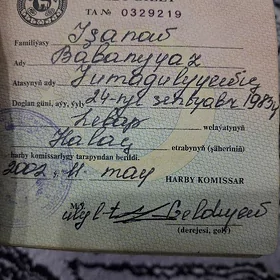 TA № 0329219
Familiýasy Işanow
Ady Babanyýaz
Atasynyň ady Jumagulyýewiç
Doglan güni, aýy, ýyly 24-nji sentýabr 1983ý
Lebap welaýatynyň
Halaç etrabynyň (şäheriniň)
harby komissarlygy tarapyndan berildi.
2002 ý. 11. maý HARBY KOMISSAR
M.Ý.
Geldiýew
(derejesi, goly)